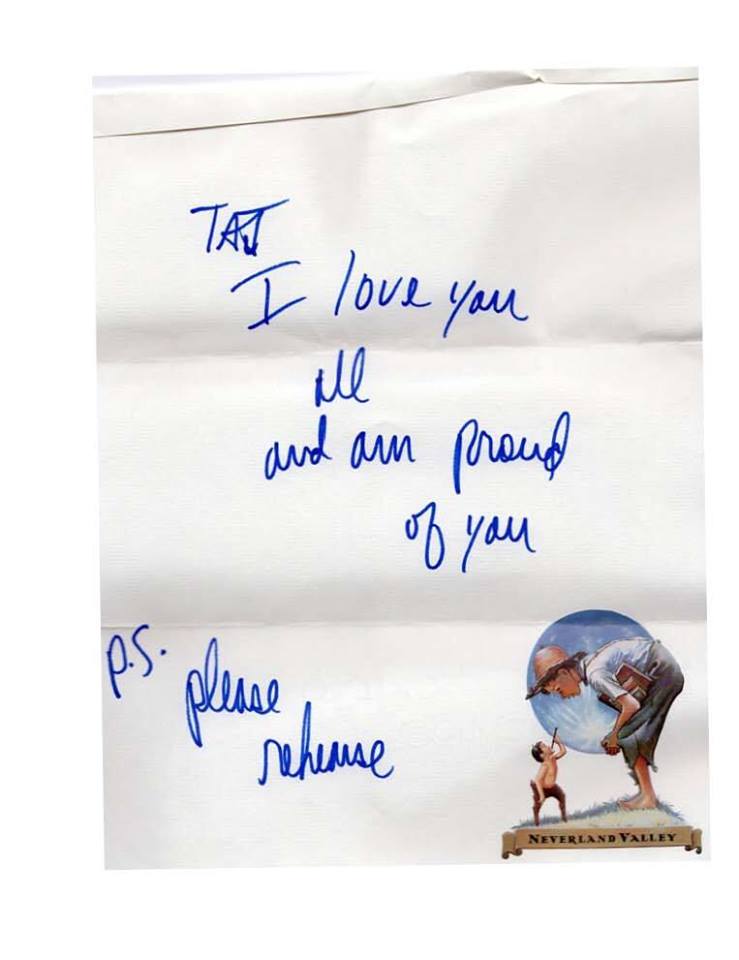 TAJ
I love you
all
and am proud
of you
P.S.
please
rehearse
NEVERLAND VALLEY